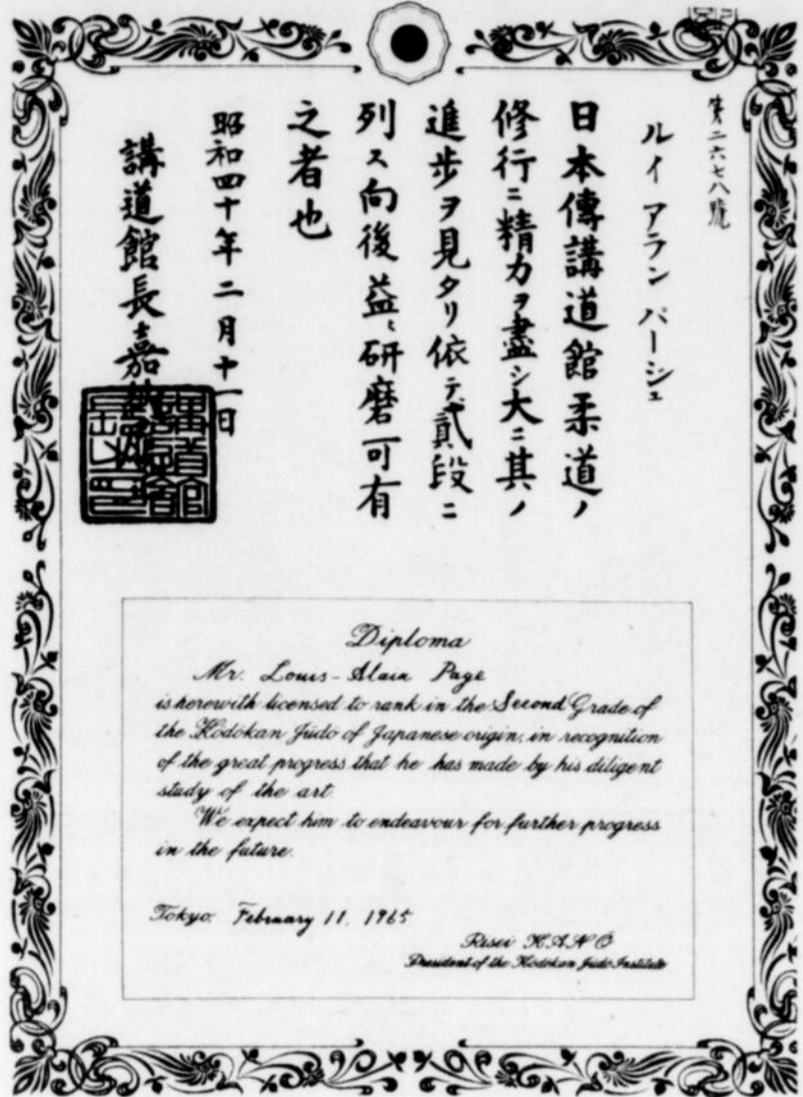 第二六七八號
ルイ アラン パージュ
日本傳講道館柔道ノ
修行ニ精力ヲ盡シ大ニ其ノ
進歩ヲ見タリ依テ貳段ニ
列ス向後益〻研磨可有
之者也
昭和四十年二月十一日
講道館長嘉納履正
講道館長之印
Diploma
Mr. Louis-Alain Page
is herewith licensed to rank in the Second Grade of
the Kōdōkan Jūdō of Japanese origin, in recognition
of the great progress that he has made by his diligent
study of the art.
We expect him to endeavour for further progress
in the future.
Tokyo. February 11. 1965
Risei KANŌ
President of the Kōdōkan Jūdō Institute